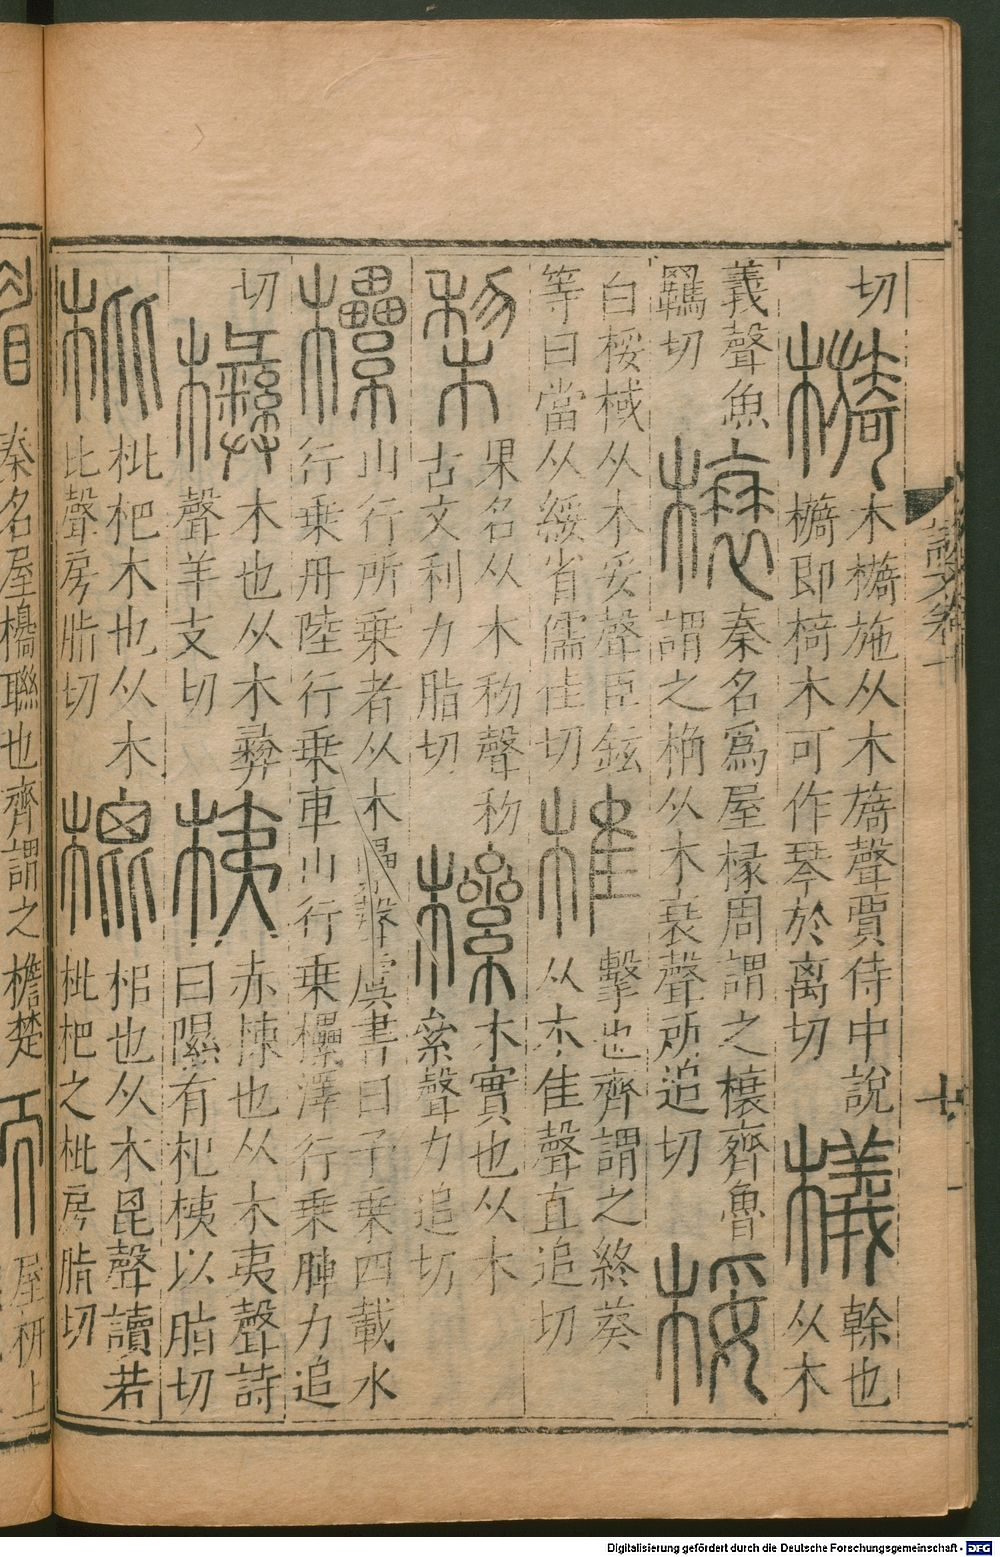 切檹木檹施从木㫊聲賈侍中說
檹即椅木可作琴於离切
檥榦也
从木
義聲魚
羈切
榱秦名爲屋椽周謂之榱齊魯
謂之桷从木衰聲所追切
桵
白桵棫从木妥聲臣鉉
等曰當从綏省儒隹切
椎擊也齊謂之終葵
从木隹聲直追切
棃果名从木𥝢聲𥝢
古文利力脂切
樏木實也从木
絫聲力追切
欙山行所乘者从木纍聲虞書曰予乘四載水
行乘舟陸行乘車山行乘欙澤行乘𨍋力追
切㰘木也从木彝
聲羊支切
桋赤楝也从木夷聲詩
曰隰有杞桋以脂切
枇枇杷木也从木
比聲房脂切
㮰梠也从木𣬉聲讀若
枇杷之枇房脂切
說文卷十
十
楣秦名屋櫋聯也齊謂之檐楚
屋枅上
Digitalisierung gefördert durch die Deutsche Forschungsgemeinschaft - DFG